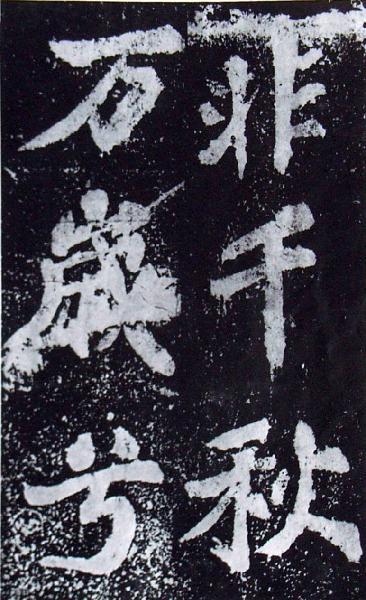 非千秋
万歲兮